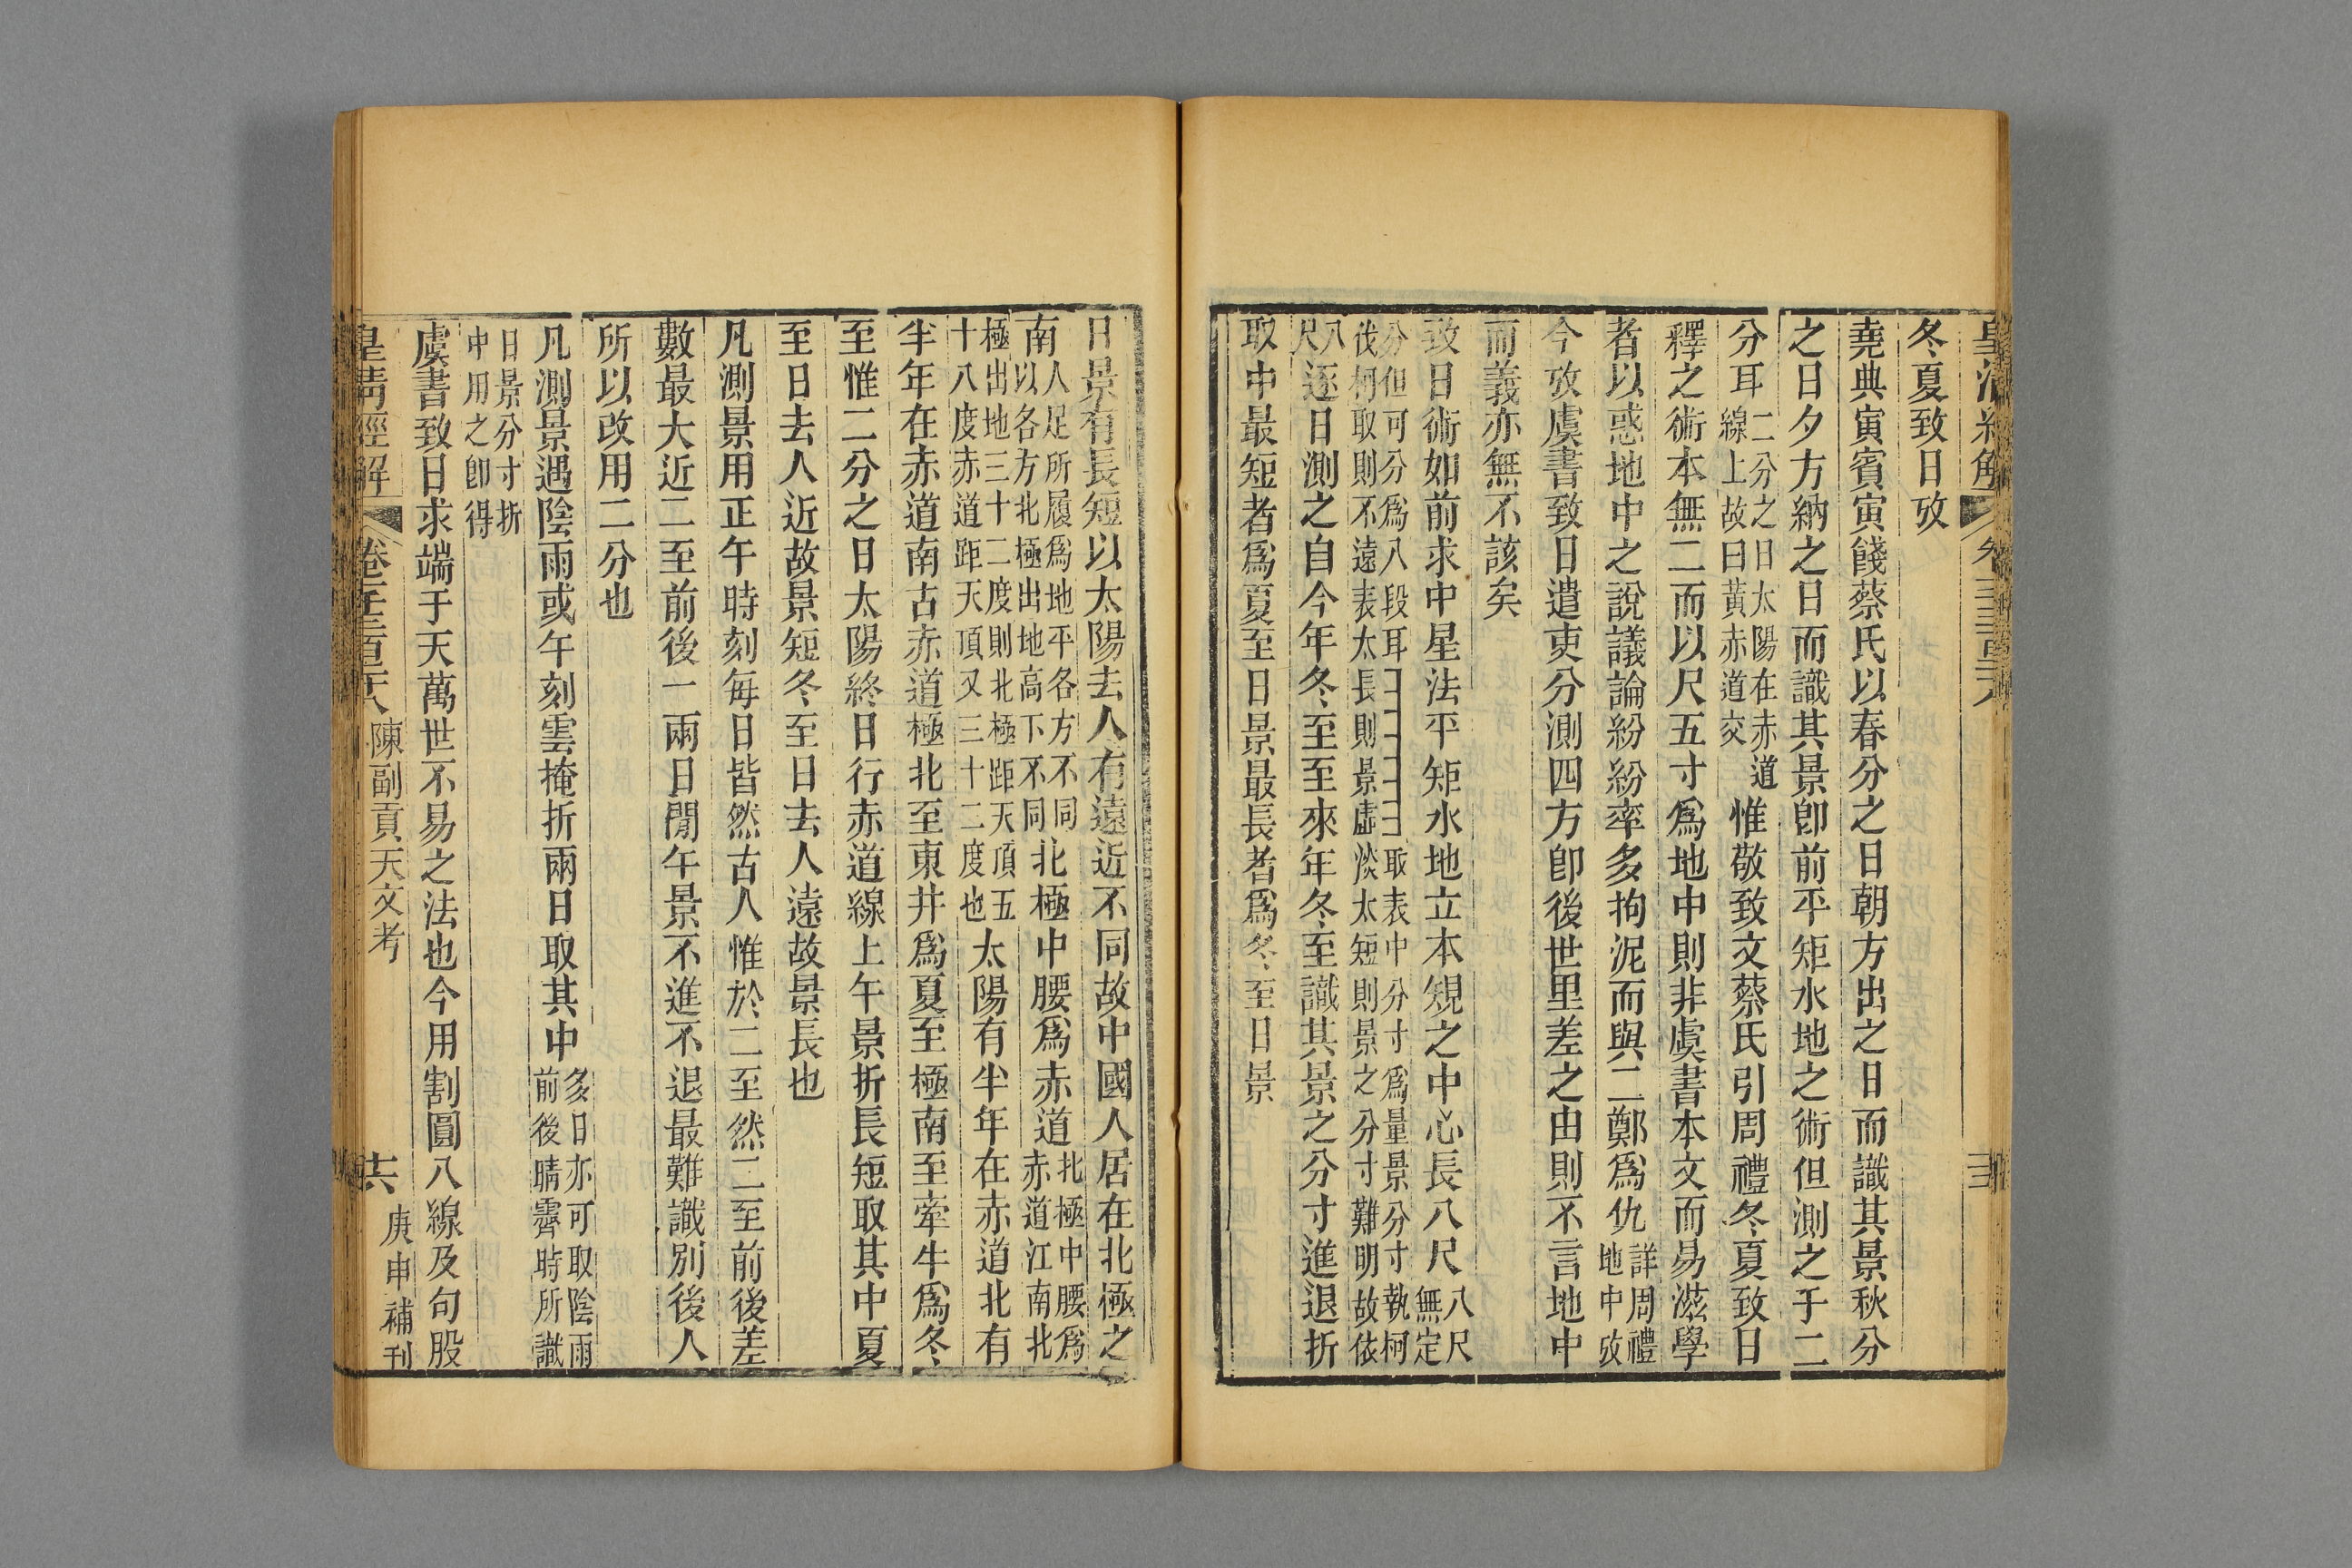 冬夏致日攷
堯典寅賓寅餞蔡氏以春分之日朝方出之日而識其景秋分
之日夕方納之日而識其景卽前平矩水地之術但測之于二
分耳二分之日太陽在赤道線上故曰黃赤道交惟敬致文蔡氏引周禮冬夏致日
釋之術本無二而以尺五寸爲地中則非虞書本文而易滋學
者以惑地中之說議論紛紛率多拘泥而與二鄭爲仇詳周禮地中攷
今攷虞書致日遣吏分測四方卽後世里差之由則不言地中
而義亦無不該矣
致日術如前求中星法平矩水地立本䂓之中心長八尺八尺無定
分但可分爲八段耳取表中分寸爲量景分寸執柯伐柯取則不遠表太長則景虛淡太短則景之分寸難明故依
八尺逐日測之自今年冬至至來年冬至識其景之分寸進退折
取中最短者爲夏至日景最長者爲冬至日景
日景有長短以太陽去人有遠近不同故中國人居在北極之
南人足所履爲地平各方不同以各方北極出地高下不同北極中腰爲赤道北極中腰爲赤道江南北
極出地三十二度則北極距天頂五十八度赤道距天頂又三十二度也太陽有半年在赤道北有
半年在赤道南古赤道極北至東井爲夏至極南至牽牛爲冬
至惟二分之日太陽終日行赤道線上午景折長短取其中夏
至日去人近故景短冬至日去人遠故景長也
凡測景用正午時刻每日皆然古人惟於二至然二至前後差
數最大近二至前後一兩日閒午景不進不退最難識別後人
所以改用二分也
凡測景遇陰雨或午刻雲掩折兩日取其中多日亦可取陰雨前後晴霽時所識
日景分寸折中用之卽得
虞書致日求端于天萬世不易之法也今用割圓八線及句股
皇淸經解
陳副貢天文考
十六
庚申補刊